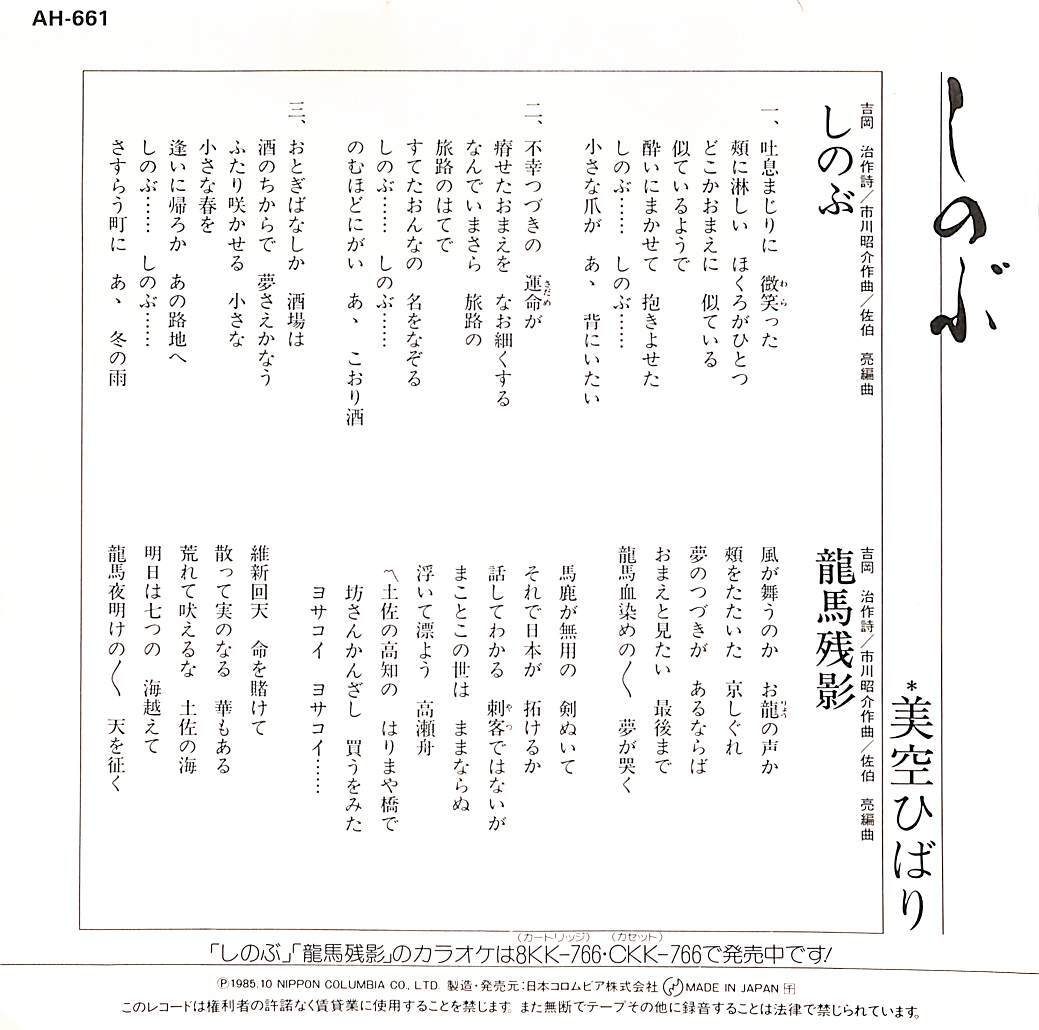 AH-661
しのぶ
*美空ひばり
吉岡 治作詩/市川昭介作曲/佐伯 亮編曲
しのぶ
一、吐息まじりに 微笑(わら)った
頬に淋しい ほくろがひとつ
どこかおまえに 似ている
似ているようで
酔いにまかせて 抱きよせた
しのぶ…… しのぶ……
小さな爪が あゝ 背にいたい
二、不幸つづきの 運命(さだめ)が
瘠せたおまえを なお細くする
なんでいまさら 旅路の
旅路のはてで
すてたおんなの 名をなぞる
しのぶ…… しのぶ……
のむほどにがい あゝ こおり酒
三、おとぎばなしか 酒場は
酒のちからで 夢さえかなう
ふたり咲かせる 小さな
小さな春を
逢いに帰ろか あの路地へ
しのぶ…… しのぶ……
さすらう町に あゝ 冬の雨
吉岡 治作詩/市川昭介作曲/佐伯 亮編曲
龍馬残影
風が舞うのか お龍(りょう)の声か
頬をたたいた 京しぐれ
夢のつづきが あるならば
おまえと見たい 最後まで
龍馬血染めの〱 夢が哭く
馬鹿が無用の 剣ぬいて
それで日本が 拓けるか
話してわかる 刺客(やつ)ではないが
まことこの世は ままならぬ
浮いて漂よう 高瀬舟
〽土佐の高知の はりまや橋で
坊さんかんざし 買うをみた
ヨサコイ ヨサコイ……
維新回天 命を賭けて
散って実のなる 華もある
荒れて吠えるな 土佐の海
明日は七つの 海越えて
龍馬夜明けの〱 天を征く
「しのぶ」「龍馬残影」のカラオケは8KK-766(カートリッジ)・CKK-766(カセット)で発売中です!
Ⓟ1985.10 NIPPON COLUMBIA CO., LTD. 製造・発売元:日本コロムビア株式会社 MADE IN JAPAN
このレコードは権利者の許諾なく賃貸業に使用することを禁じます。また無断でテープその他に録音することは法律で禁じられています。